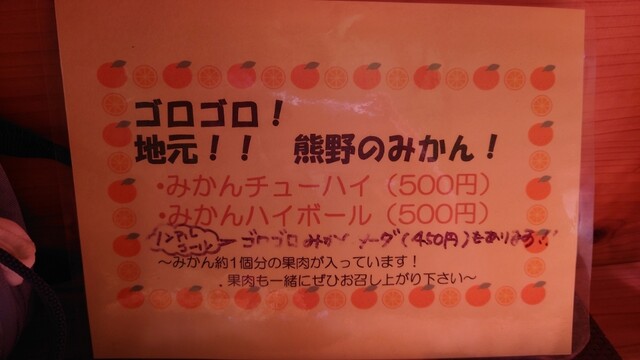 ゴロゴロ！
地元！！　熊野のみかん！
・みかんチューハイ（500円）
・みかんハイボール（500円）
ノンアルコール ゴロゴロみかんソーダ（450円）もあります！！
～みかん約1個分の果肉が入っています！
．果肉も一緒にぜひお召し上がり下さい～